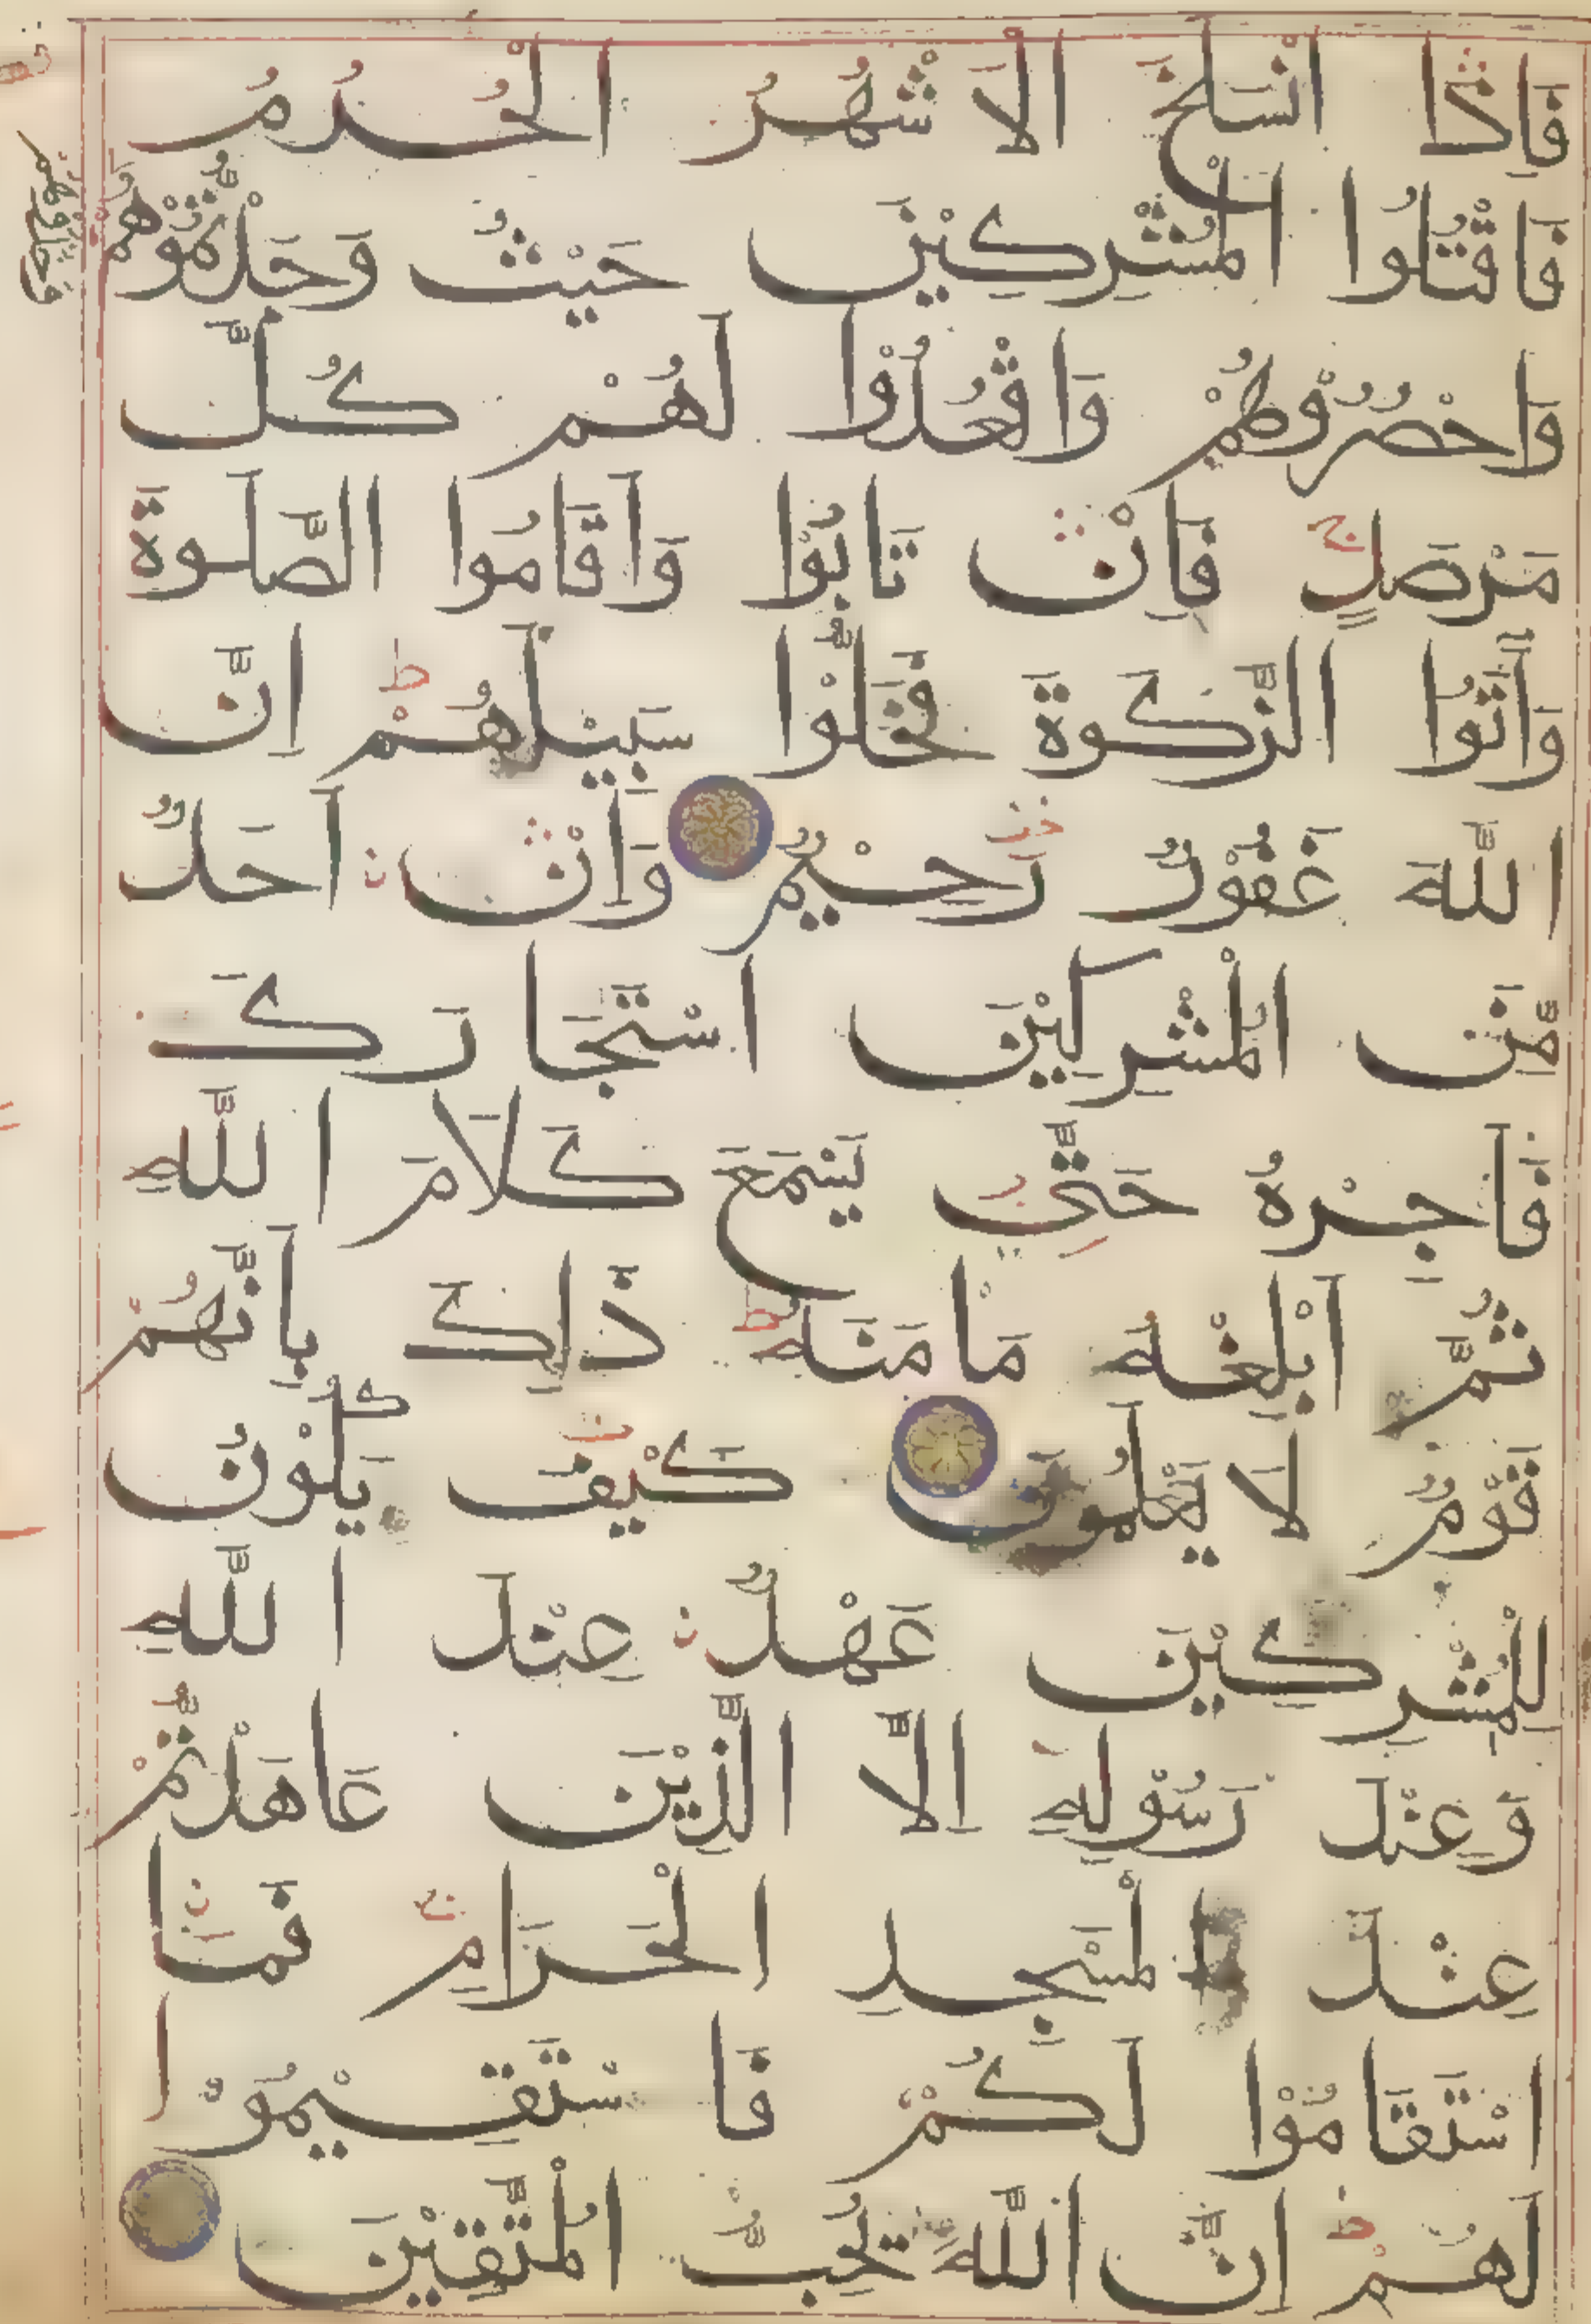 فَاِذَا انْسَلَخَ الْاَشْهُرُ الْحُرُمُ
فَاقْتُلُوا الْمُشْرِكِيْنَ حَيْثُ وَجَدْتُّمُوْهُمْ
وَاحْصُرُوْهُمْ وَاقْعُدُوْا لَهُمْ كُلَّ
مَرْصَدٍ فَاِنْ تَابُوْا وَاَقَامُوا الصَّلٰوةَ
وَاٰتَوُا الزَّكٰوةَ فَخَلُّوْا سَبِيْلَهُمْ اِنَّ
اللّٰهَ غَفُوْرٌ رَحِيْمٌ وَاِنْ اَحَدٌ
مِّنَ الْمُشْرِكِيْنَ اسْتَجَارَكَ
فَاَجِرْهُ حَتّٰى يَسْمَعَ كَلَامَ اللّٰهِ
ثُمَّ اَبْلِغْهُ مَاْمَنَهٗ ذٰلِكَ بِاَنَّهُمْ
قَوْمٌ لَا يَعْلَمُوْنَ كَيْفَ يَكُوْنُ
لِلْمُشْرِكِيْنَ عَهْدٌ عِنْدَ اللّٰهِ
وَعِنْدَ رَسُوْلِهٖ اِلَّا الَّذِيْنَ عَاهَدْتُّمْ
عِنْدَ الْمَسْجِدِ الْحَرَامِ فَمَا
اسْتَقَامُوْا لَكُمْ فَاسْتَقِيْمُوْا
لَهُمْ اِنَّ اللّٰهَ يُحِبُّ الْمُتَّقِيْنَ